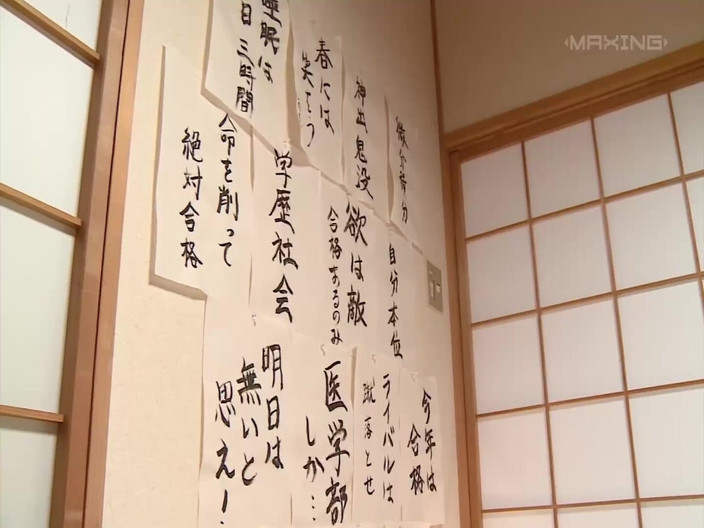 MAXING
微分積分
神出鬼没
春には
笑そう
睡眠は
一日三時間
自分本位
欲は敵
合格あるのみ
学歴社会
命を削って
絶対合格
今年は
合格
ライバルは
蹴落とせ
医学部
しか…
明日は
無いと
思え!